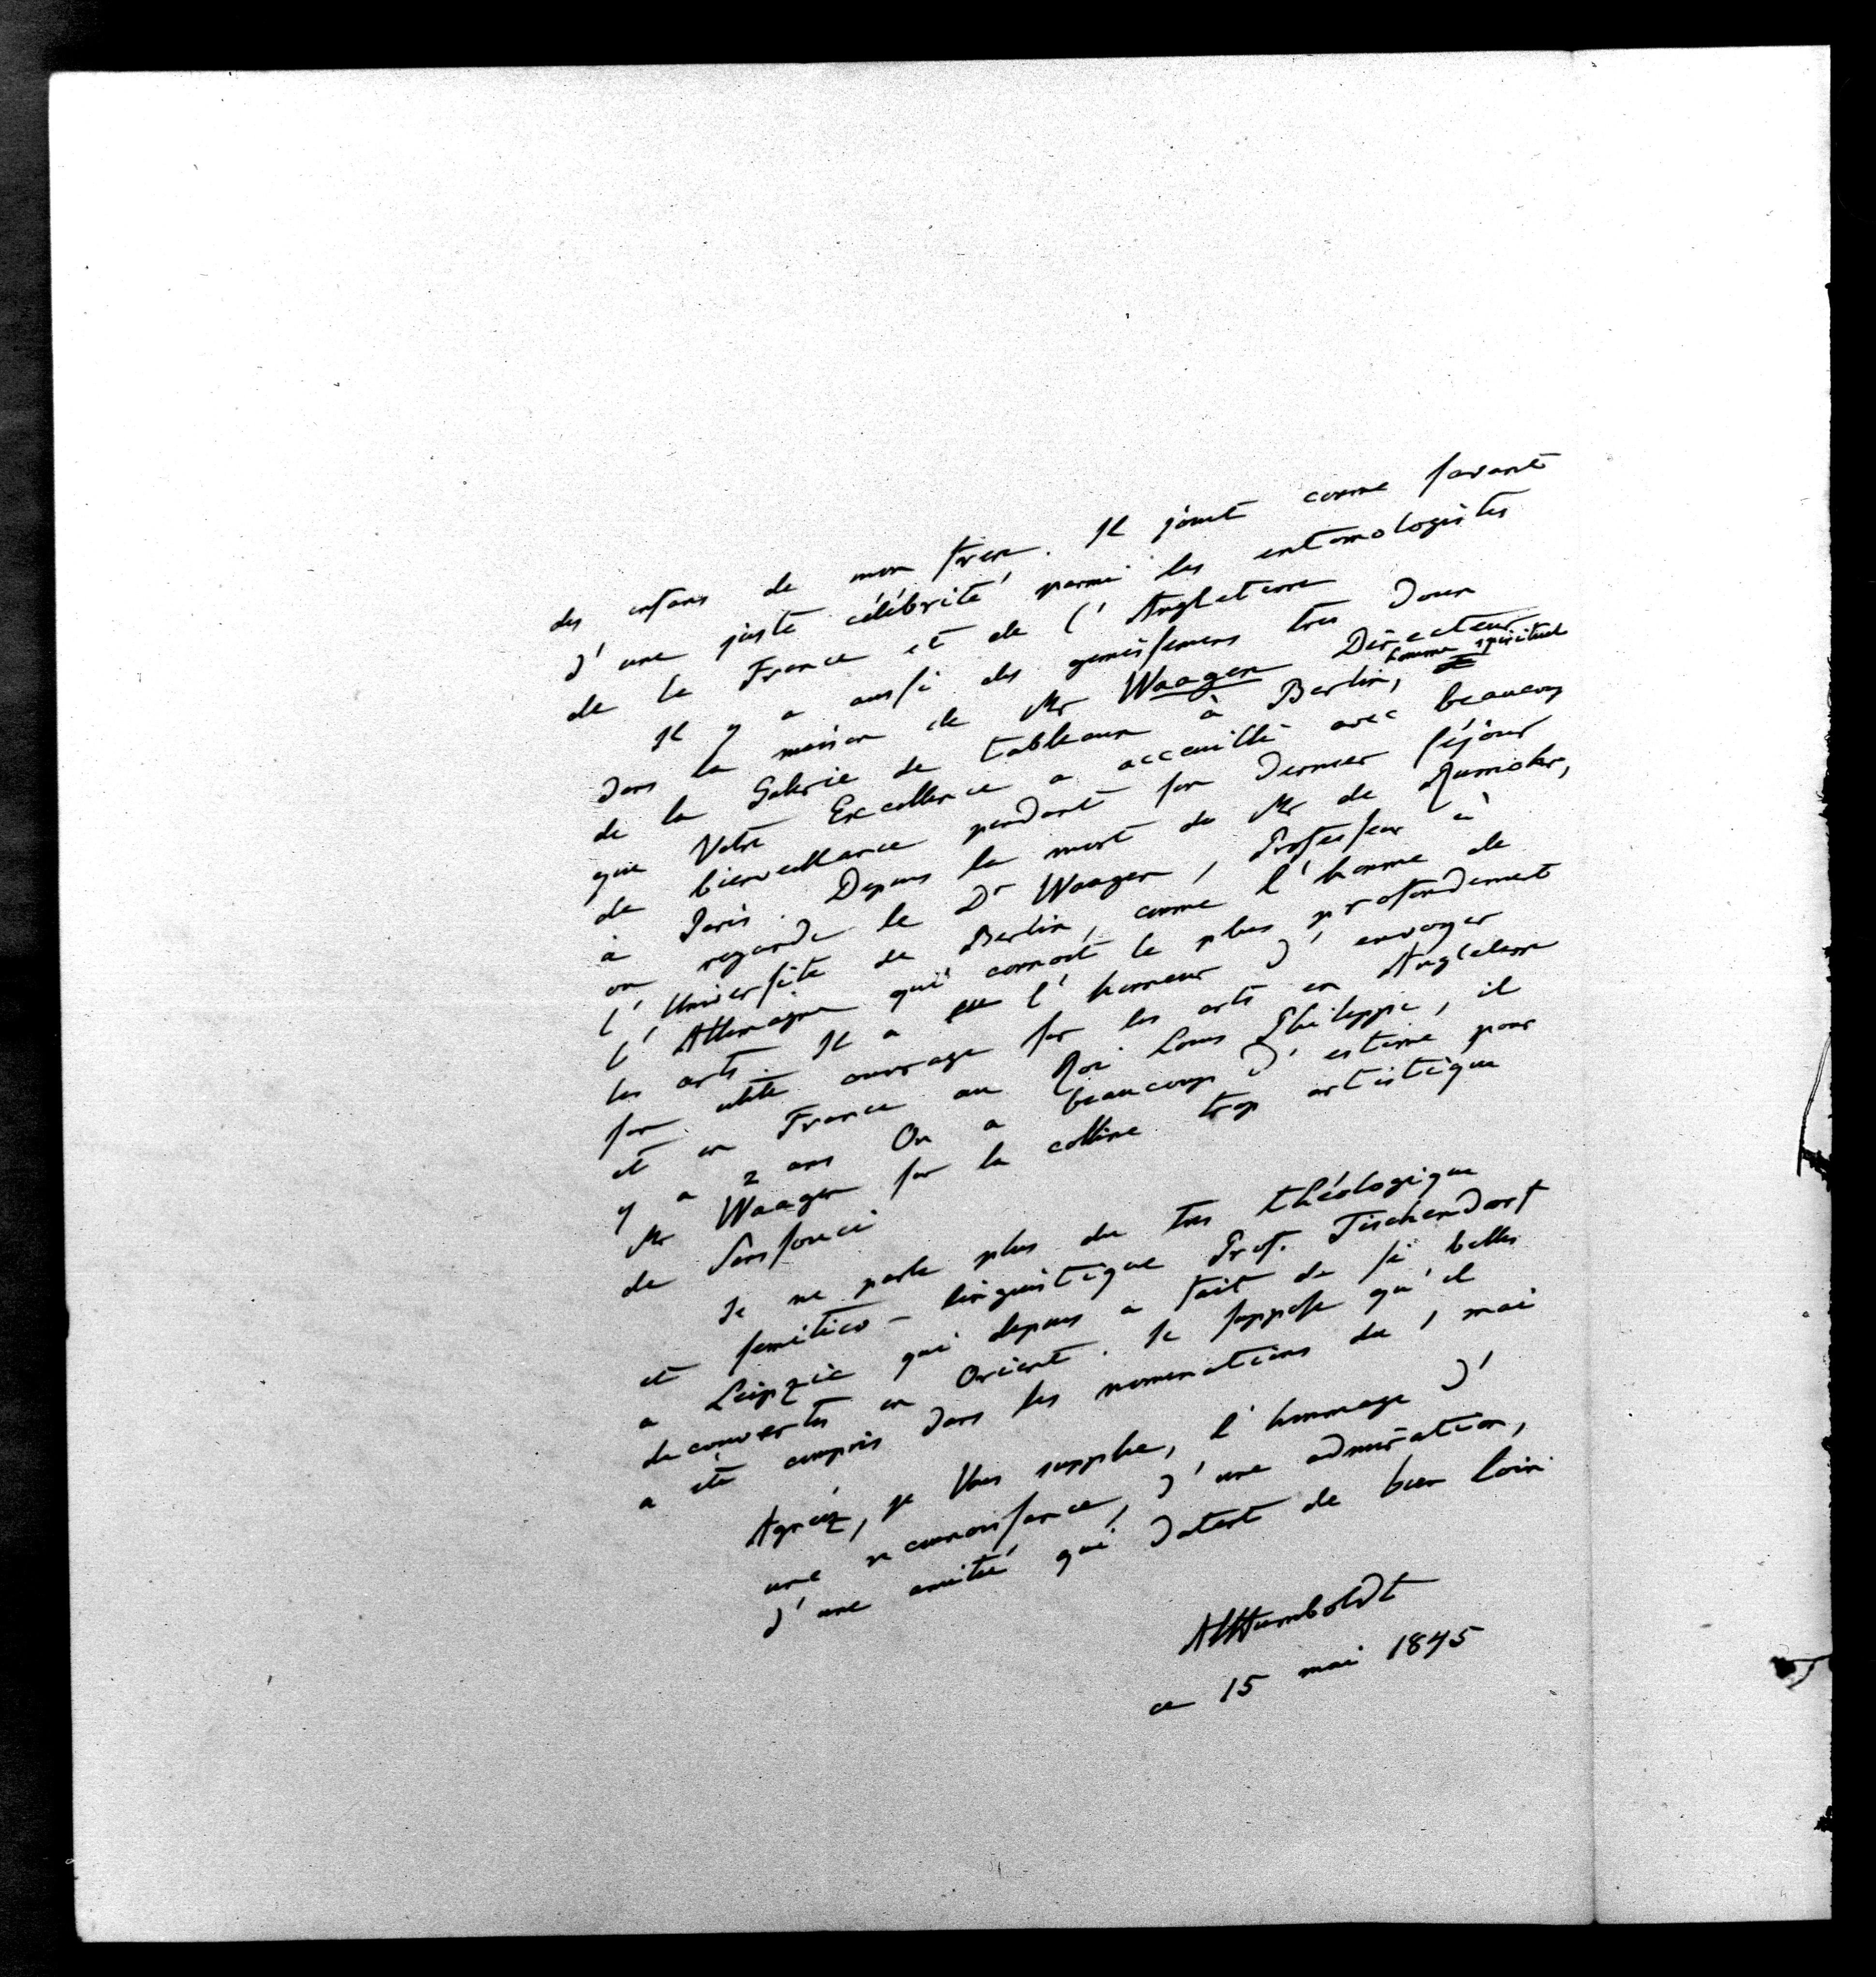 des enfans de mon frere. Il jouit comme savant
d'une juste célébrité parmi les entomologistes
de la France et de l'Angleterre
Il y a aussi des gemissemens tres doux
dans la maison de Mr Waagen Directeur
de la Galerie de tableaux à Berlin, homme spirituel
que Votre Excellence a accueilli avec beaucoup
de bienveillance pendant son dernier séjour
à Paris. Depuis la mort de Mr de Rumohr,
on regarde le Dr Waagen, Professeur à
l'Université de Berlin, comme l'homme de
l'Allemagne qui connait le plus profondement
les arts. Il a eu l'honneur d'envoyer
son utile ouvrage sur les arts en Angleterre
et en France au Roi Louis Philippe, il
y a 2 ans On a beaucoup d'estime pour
Mr Waagen sur la colline trop artistique
de Sanssouci
Je ne parle plus du tres théologique
et semitico-linguistique Prof. Tischendorf
a Leipzic qui depuis a fait de si belles
decouvertes en Orient. Je suppose qu'il
a été compris dans les nominations du 1 mai
Agréez, je Vous supplie, l'hommage d'
une reconnoissance, d'une admiration,
d'une amitié qui datent de bien loin
AlHumboldt
ce 15 mai 1845